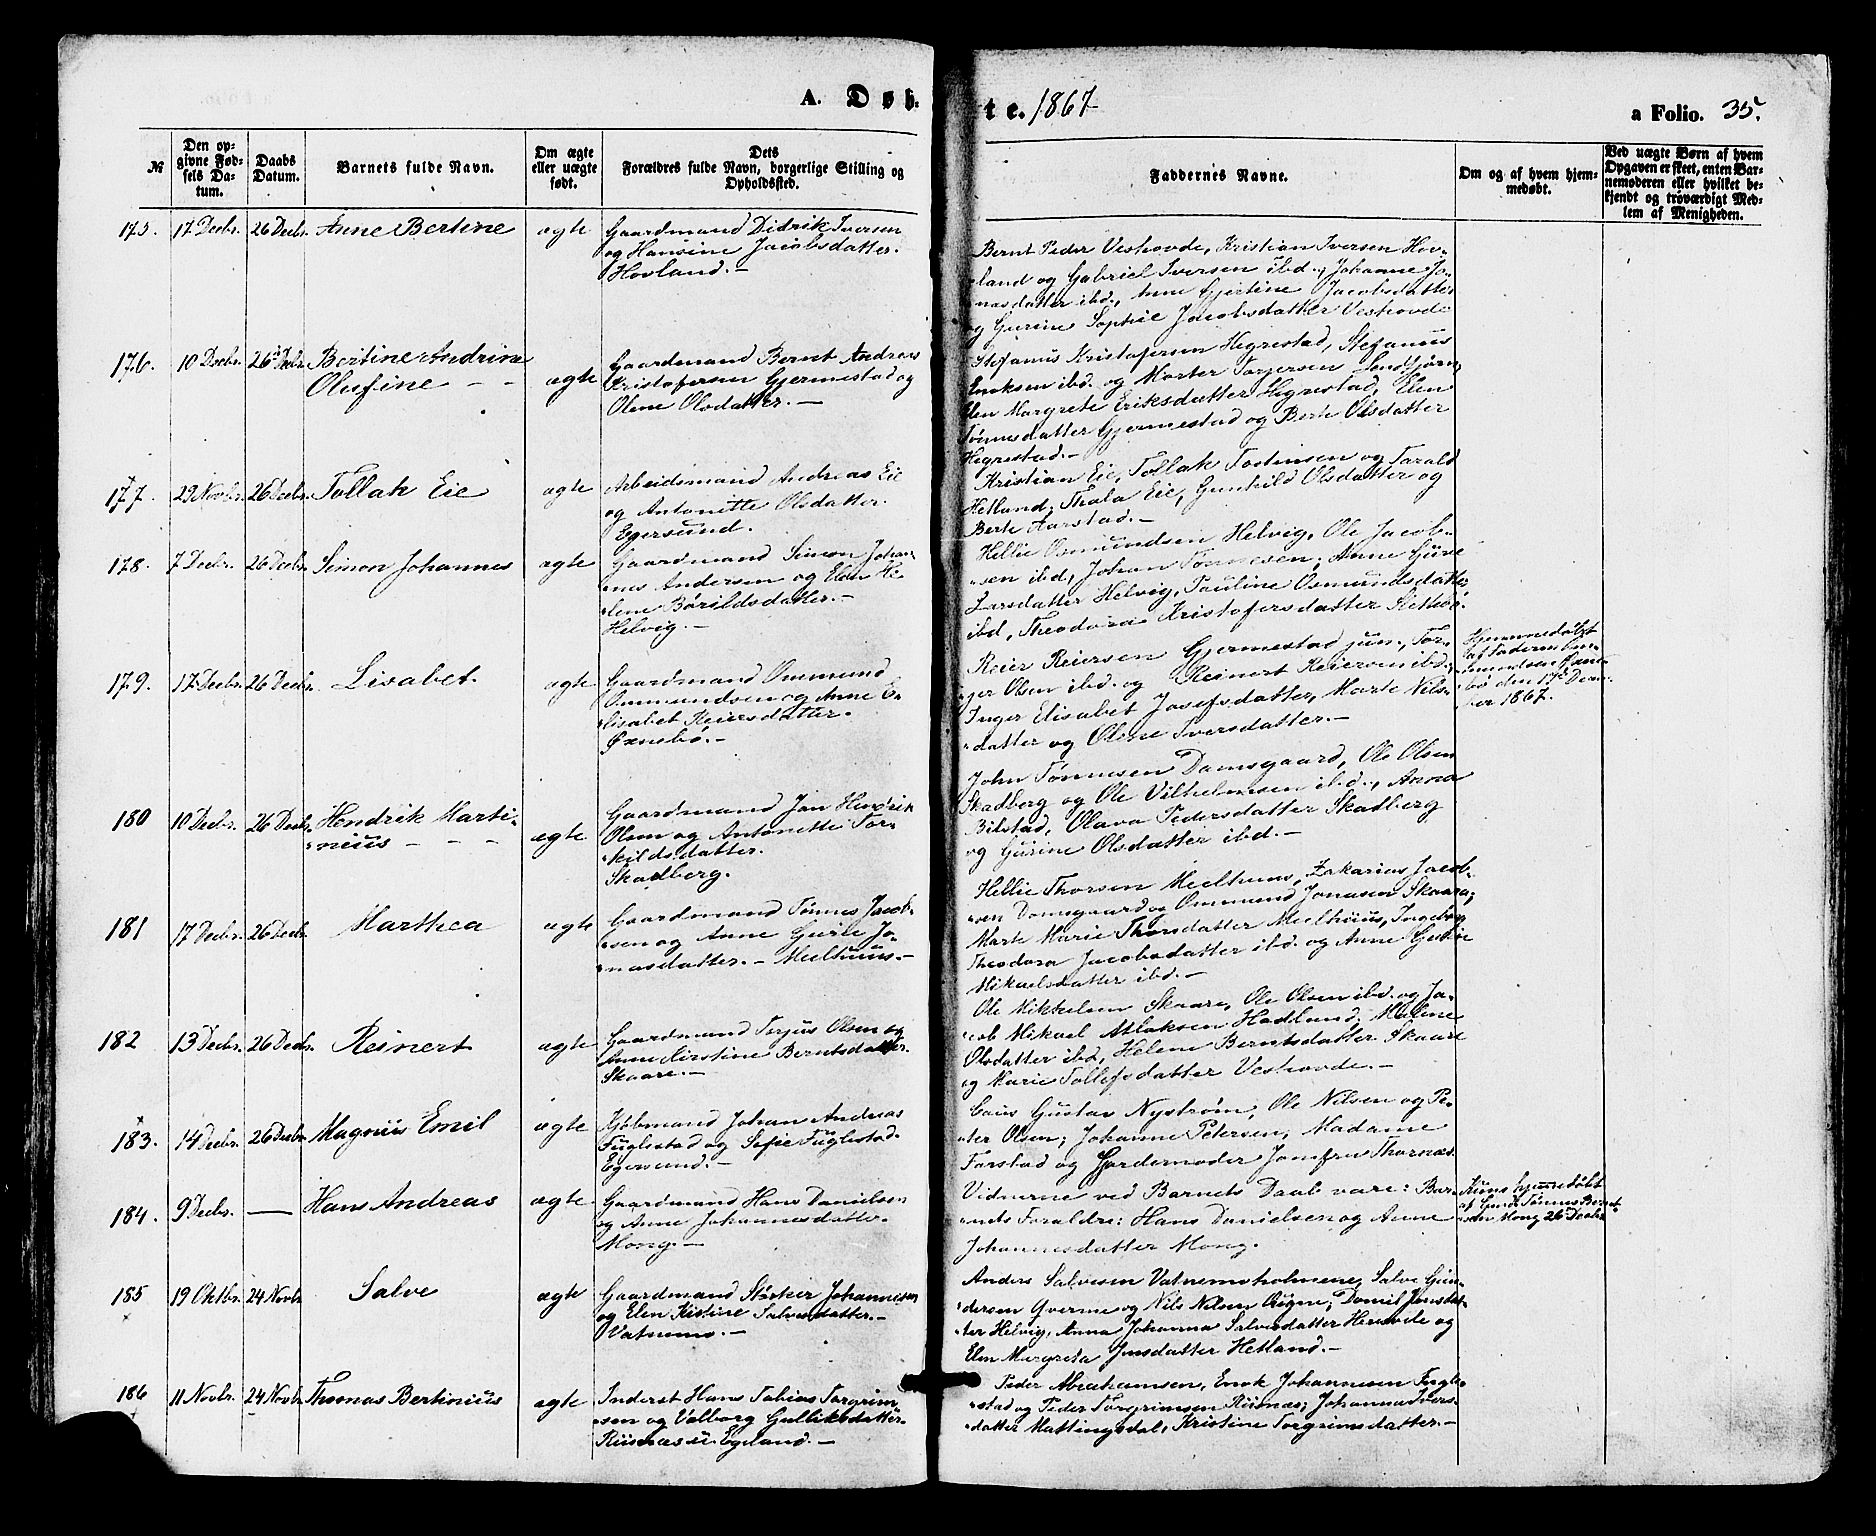 A. Døb-
te. 1867
a Folio. 35.
№
Den op-
givne Fød-
sels Da-
tum.
Daabs
Datum.
Barnets fulde Navn.
Om ægte
eller uægte
født.
Dets
Forældres fulde Navn, borgerlige Stilling og
Opholdssted.
Faddernes Navne.
Om og af hvem hjem-
medøbt.
Ved uægte Børn af hvem
Opgaven er skeet, enten Bar-
nemoderen eller hvilket be-
kjendt og troværdigt Med-
lem af Menigheden.
175. 17 Decbr. 26 Decbr. Anne Bertine ægte
Gaardmand Didrik Iversen
og Hansine Jacobsdatter.
Hovland.-
Bernt Peder Veshovde, Kristian Iversen Hov-
land og Gabriel Iversen ibd., Johanne Jo-
nasdatter ibd., Anne Gjertine Jacobsdatter
og Gurine Sophie Jacobsdatter Veshovde
176. 10 Decbr. 26 Decbr. Bertine Andrine
Olufine - - ægte
Gaardmand Bernt Andreas
Kristofersen Gjermestad og
Olene Olsdatter.-
Stefanus Kristofersen Hegrestad, Stefanus
Enoksen ibd. og Morten Torjersen
Elen Margrete Eriksdatter Hegrestad, Elen
Tønnesdatter Gjermestad og Berte Olsdatter
Hegrestad.-
177. 29 Novbr. 26 Decbr. Tollak Eie ægte
Arbeidsmand Andreas Eie
og Antonette Olsdatter.
Egersund.
Kristian Eie, Tollak Tostensen og Tarald
Hetland, Thala Eie, Gunhild Olsdatter og
Berte Aarstad.-
178. 7 Decbr. 26 Decbr. Simon Johannes ægte
Gaardmand Simon Johan-
nes Andersen og Elen He-
lene Børildsdatter.-
Helvig.-
Hellie Osmundsen Helvig, Ole Jacob-
sen ibd, Johan Tønnesen; Anne Gurie
Larsdatter Helvig, Pauline Osmundsdatter
ibd, Theodora Kristofersdatter
179. 17 Decbr. 26 Decbr. Lisabet. ægte
Gaardmand Ommund
Ommundsen og Anne E-
lisabet Reiersdatter.
Øxnebø.-
Reier Reiersen Gjermestad jun., Tor-
ger Olsen ibd. og Reinert Reiersen ibd.;
Inger Elisabet Josefsdatter, Marte Nils-
datter og Olene Iversdatter.-
Hjemmedøbt
af Faderen Om-
mundsen Øxne-
bø den 17de Decem-
ber 1867.
180 10 Decbr. 26 Decbr. Hendrik Marti-
nius - - - ægte
Gaardmand Jan Hendrik
Olsen og Antonette Tor-
kildsdatter.
Skadberg.
John Tønnesen Damsgaard, Ole Olsen
Skadberg og Ole Vilhelmsen ibd., Anna
Bilstad, Olava Pedersdatter Skadberg
og Gurine Olsdatter ibd.-
181 17 Decbr. 26 Decbr. Marthea ægte
Gaardmand Tønnes Jacob-
sen og Anne Gurie Jo-
nasdatter.- Meelhuus.-
Hellie Thorsen Meelhuus, Zakarias Jacob-
sen Damsgaard og Ommund Jonasen Skaara;
Marte Marie Thorsdatter Meelhuus, Ingeborg
Theodora Jacobsdatter ibd. og Anne Gurine
Mikaelsdatter ibd.-
182 13 Decbr. 26 Decbr. Reinert ægte
Gaardmand Terjus Olsen og
Anne Kirstine Berntsdatter.
Skaare.-
Ole Mikkelsen Skaare, Ole Olsen ibd. og Ja-
cob Mikael Atlaksen Hadland. Malene
Olsdatter ibd, Helene Berntsdatter Skaare
og Marie Tollefsdatter Veshovde.-
183. 14 Decbr. 26 Decbr. Magnus Emil ægte
Kjøbmand Johan Andreas
Fuglestad og Sofie Fuglestad.
Egersund.-
Caus Gustav Nystrøm, Ole Nilsen og Pe-
ter Olsen; Johanne Petersen, Madame
Farstad og Jordemoder Jomfru Thornæs.
184. 9 Decbr. - Hans Andreas ægte
Gaardmand Hans Danielsen
og Anne Johannesdatter.
Mong.-
Vidnerne ved Barnets Daab vare: Bar-
nets Foraldre: Hans Danielsen og Anne
Johannesdatter Mong.
Kuns hjemmedøbt
af Tønnes Bernt-
sen Mong 26 Decbr
185 19 Oktbr. 24 Novbr Salve ægte
Gaardmand Størker Johannesen
og Elen Kistine Salvesdatter.-
Vatnemo.-
Anders Salvesen Vatnemoholmene, Salve Gun-
dersen Gverme og Nils Nilsen Øigne; Daniel Jensdat-
ter Helvig, Anna Johanna Salvesdatter Heraavde og
Elen Margreta Jensdatter Hetland.-
186 11 Novbr. 24 Novbr. Thomas Bertinius ægte
Inderst Hans Tobias Torgrim-
sen og Valborg Gulliksdatter.
Riisnæs u. Egeland.-
Peder Abrahamsen, Enok Johannesen Fugle-
stad og Peder Torgrimsen Riisnæs; Johanna Ivers-
datter Mattingsdal, Kristine Torgrimsdatter.-